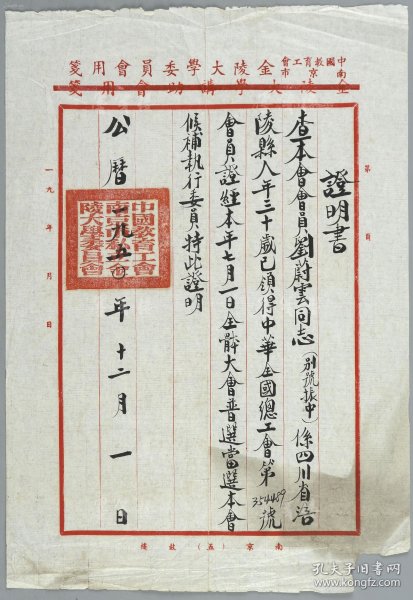 中國教育工會南京市金陵大學委員會用箋
證明書
查本會會員劉蔚雲同志(別號振中)係四川省涪
陵縣人年三十歲已領得中華全國總工會第354489號
會員證經本年七月一日全體大會普選當選本會
候補執行委員特此證明
公曆一九五〇年十二月一日
中國教育工會
陵大學委員會
第 頁
一九 年 月 日
南京(五)
孔夫子旧书网
www.kongfz.com